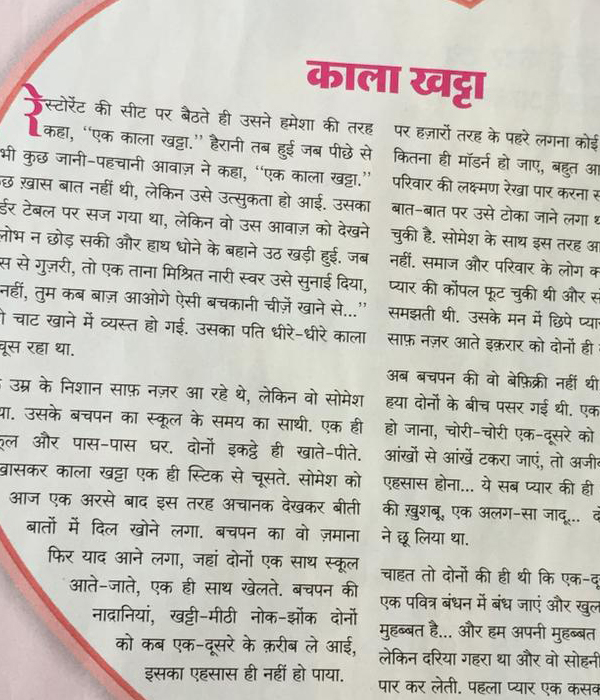 काला खट्टा
रेस्टोरेंट की सीट पर बैठते ही उसने हमेशा की तरह
कहा, “एक काला खट्टा.” हैरानी तब हुई जब पीछे से
भी कुछ जानी-पहचानी आवाज़ ने कहा, “एक काला खट्टा.”
ख़ास बात नहीं थी, लेकिन उसे उत्सुकता हो आई. उसका
टेबल पर सज गया था, लेकिन वो उस आवाज़ को देखने
न छोड़ सकी और हाथ धोने के बहाने उठ खड़ी हुई. जब
से गुज़री, तो एक ताना मिश्रित नारी स्वर उसे सुनाई दिया,
नहीं, तुम कब बाज़ आओगे ऐसी बचकानी चीज़ें खाने से...”
चाट खाने में व्यस्त हो गई. उसका पति धीरे-धीरे काला
चूस रहा था.
उम्र के निशान साफ़ नज़र आ रहे थे, लेकिन वो सोमेश
उसके बचपन का स्कूल के समय का साथी. एक ही
और पास-पास घर. दोनों इकट्ठे ही खाते-पीते.
काला खट्टा एक ही स्टिक से चूसते. सोमेश को
आज एक अरसे बाद इस तरह अचानक देखकर बीती
बातों में दिल खोने लगा. बचपन का वो ज़माना
फिर याद आने लगा, जहां दोनों एक साथ स्कूल
आते-जाते, एक ही साथ खेलते. बचपन की
नादानियां, खट्टी-मीठी नोक-झोंक दोनों
को कब एक-दूसरे के क़रीब ले आई,
इसका एहसास ही नहीं हो पाया.
पर हज़ारों तरह के पहरे लगना कोई
कितना ही मॉडर्न हो जाए, बहुत आ
परिवार की लक्ष्मण रेखा पार करना स
बात-बात पर उसे टोका जाने लगा
चुकी है. सोमेश के साथ इस तरह आ
नहीं. समाज और परिवार के लोग क
प्यार की कोंपल फूट चुकी थी और
समझती थी. उसके मन में छिपे प्या
साफ़ नज़र आते इक़रार को दोनों ही
अब बचपन की वो बेफ़िक्री नहीं थी
हया दोनों के बीच पसर गई थी. एक
हो जाना, चोरी-चोरी एक-दूसरे को
आंखों से आंखें टकरा जाएं, तो अजी
एहसास होना... ये सब प्यार की ही
की ख़ुशबू, एक अलग-सा जादू...
ने छू लिया था.
चाहत तो दोनों की ही थी कि एक-दू
एक पवित्र बंधन में बंध जाएं और खुल
मुहब्बत है... और हम अपनी मुहब्बत
लेकिन दरिया गहरा था और वो सोहनी
पार कर लेती. पहला प्यार एक कसक